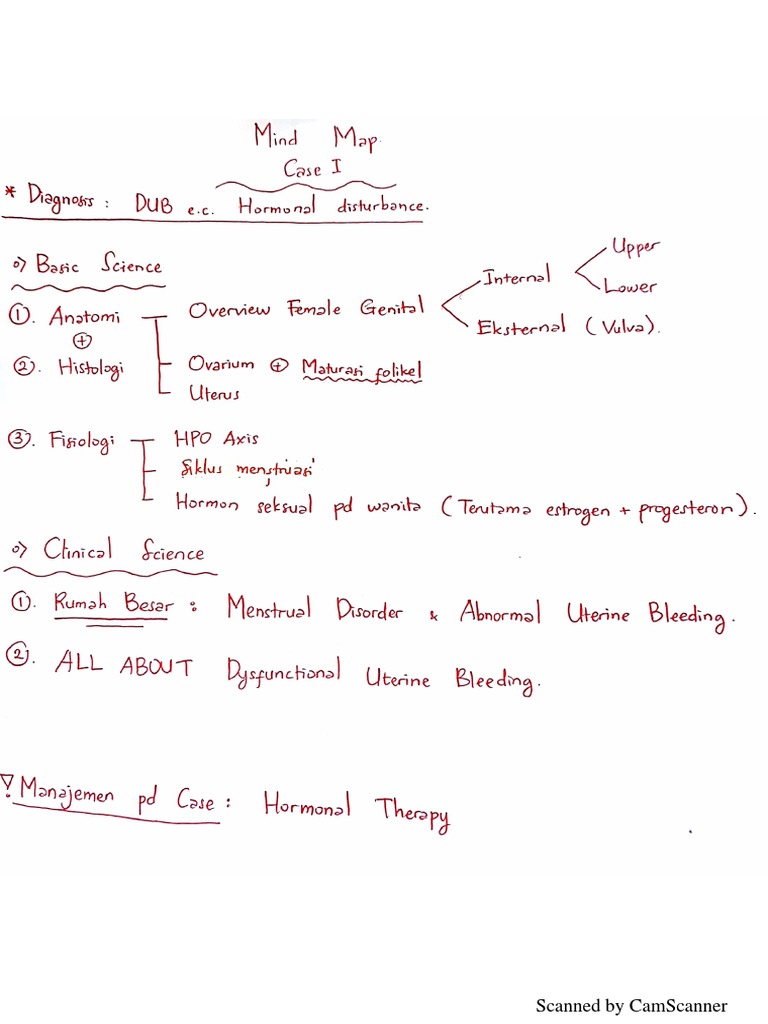 Mind Map
Case I
* Diagnosis : DUB e.c. Hormonal disturbance.
o) Basic Science
①. Anatomi
⊕
②. Histologi
Overview Female Genital
Internal
Upper
Lower
Eksternal (Vulva).
Ovarium ⊕ Maturasi folikel
Uterus
③. Fisiologi
HPO Axis
Siklus menstruasi
Hormon seksual pd wanita (Terutama estrogen + progesteron).
o) Clinical Science
①. Rumah Besar : Menstrual Disorder & Abnormal Uterine Bleeding.
②. ALL ABOUT Dysfunctional Uterine Bleeding.
! Manajemen pd Case : Hormonal Therapy
Scanned by CamScanner